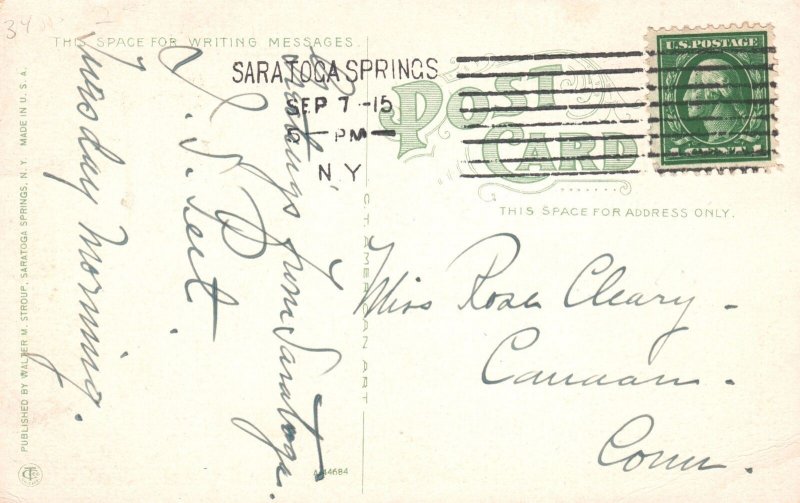 34
THIS SPACE FOR WRITING MESSAGES.
SARATOGA SPRINGS
SEP 7-15
PM
N Y
POST CARD
U.S. POSTAGE
THIS SPACE FOR ADDRESS ONLY.
Miss Rosa Cleary -
Canaan -
Conn.
from Saratoga.
Tuesday Morning.
ST AMERICAN ART
A-44684
PUBLISHED BY WALTER M. STROUP, SARATOGA SPRINGS, N. Y. MADE IN U. S. A.